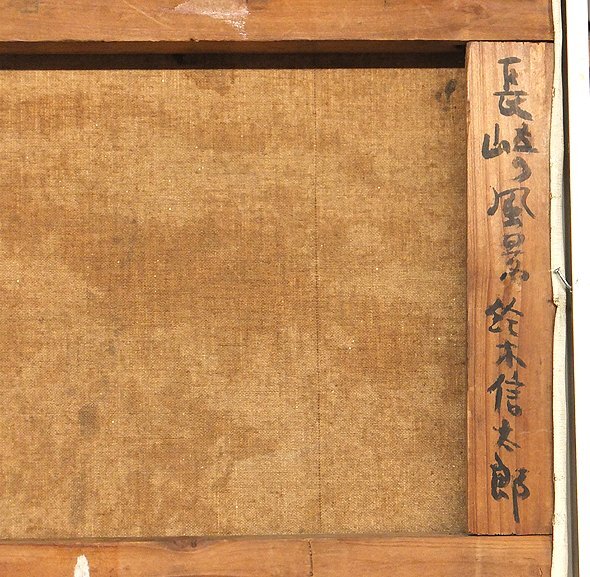 長崎の風景 鈴木信太郎